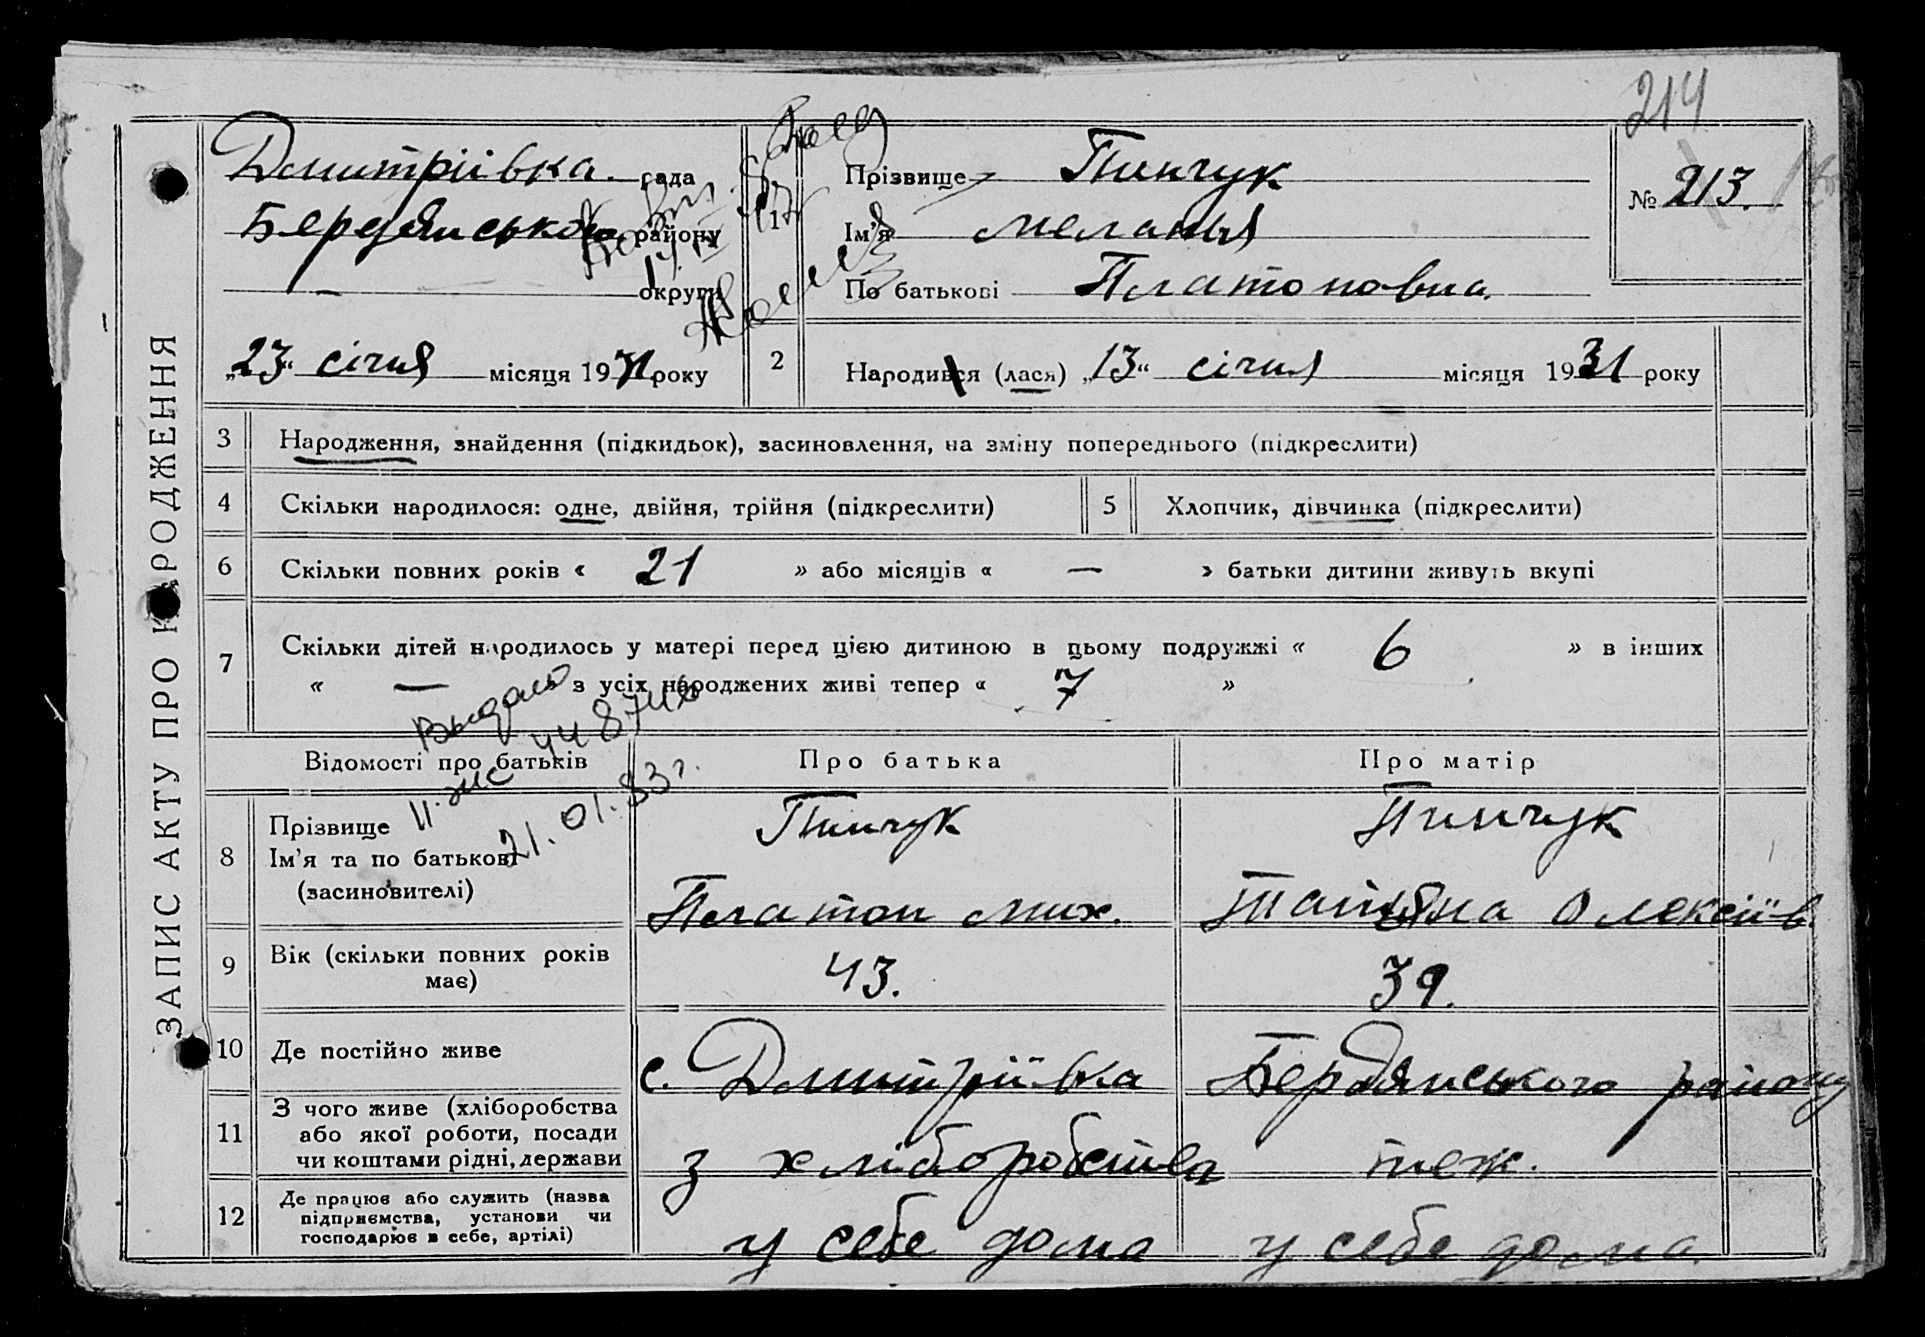 214
ЗАПИС АКТУ ПРО НАРОДЖЕННЯ
Дмитріівка рада
Бердянського району
— округи
„23“ січня місяця 1931 року
1
Прізвище Пинчук
Ім’я меланья
По батькові Платоновна.
№ 213.
2 Народився (лася) „13“ січня місяця 1931 року
3 Народження, знайдення (підкидьок), засиновлення, на зміну попереднього (підкреслити)
4 Скільки народилося: одне, двійня, трійня (підкреслити)
5 Хлопчик, дівчинка (підкреслити)
6 Скільки повних років « 21 » або місяців « — » батьки дитини живуть вкупі
7 Скільки дітей народилось у матері перед цією дитиною в цьому подружжі « 6 » в інших
« — з усіх народжених живі тепер « 7 »
Выдано
448746
21.01.83 г.
Відомості про батьків Про батька Про матір
8 Прізвище
Ім’я та по батькові
(засиновителі)
Пинчук
Платон мих.
Пинчук
Татьяна Олексіїв.
9 Вік (скільки повних років
має)
43. 39.
10 Де постійно живе с. Дмитріївка Бердянського району
11 З чого живе (хліборобства
або якої роботи, посади
чи коштами рідні, держави
з хліборобства теж.
12 Де працює або служить (назва
підприємства, установи чи
господарює в себе, артілі)
у себе дома у себе дома